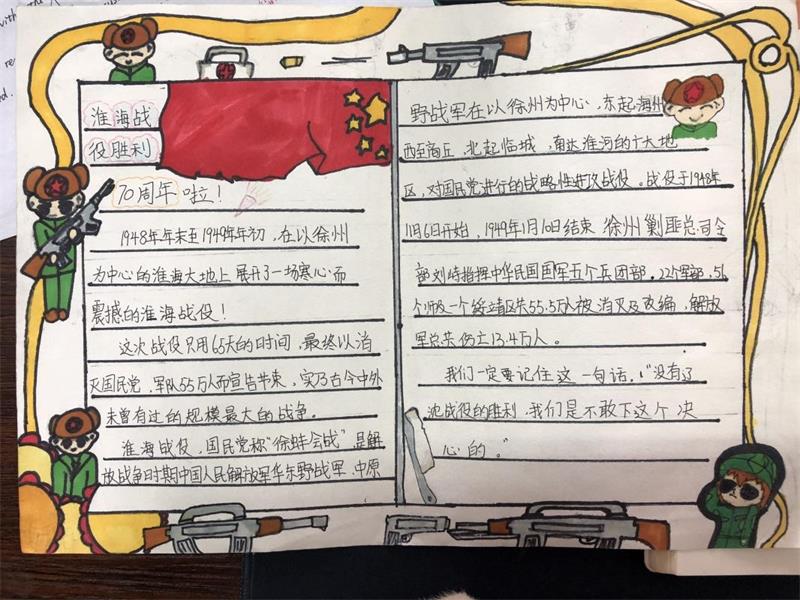 淮海战
役胜利
70周年啦！
1948年年末至1949年年初，在以徐州
为中心的淮海大地上展开了一场寒心而
震撼的淮海战役！
这次战役只用65天的时间，最终以消
灭国民党军队55万人而宣告结束，实乃古今中外
未曾有过的规模最大的战争。
淮海战役，国民党称"徐蚌会战"，是解
放战争时期中国人民解放军华东野战军、中原
野战军在以徐州为中心，东起海州
西至商丘，北起临城，南达淮河的广大地
区，对国民党进行的战略性进攻战役。战役于1948年
11月6日开始，1949年1月10日结束，徐州剿匪总司令
部刘峙指挥中华民国国军五个兵团部，22个军部，56
个师及一个绥靖区共55.5万人被消灭及改编，解放
军总共伤亡13.4万人。
我们一定要记住这一句话，"没有辽
沈战役的胜利，我们是不敢下这个决
心的。"